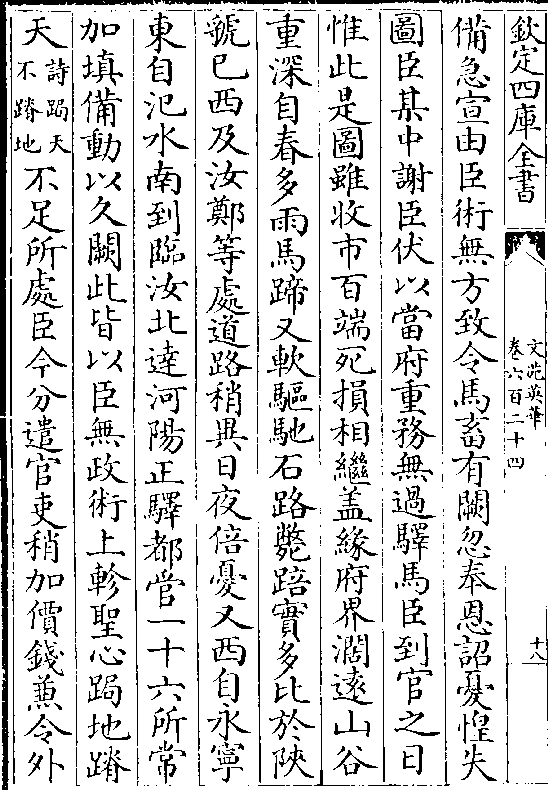 欽定四庫全書
文苑英華
卷六百二十四
十八
備急宣由臣術無方致令馬畜有闕忽奉恩詔憂惶失
圖臣某中謝臣伏以當府重務無過驛馬臣到官之日
惟此是圖雖收市百端死損相繼盖緣府界濶逺山谷
重深自春多雨馬蹄又軟驅馳石路斃踣實多比於陜
虢已西及汝鄭等處道路稍異日夜倍憂又西自永寧
東自汜水南到臨汝北逹河陽正驛都管一十六所常
加填備動以久闕此皆以臣無政術上軫聖心跼地蹐
天詩跼天不蹐地不足所處臣今分遣官吏稍加價錢兼令外